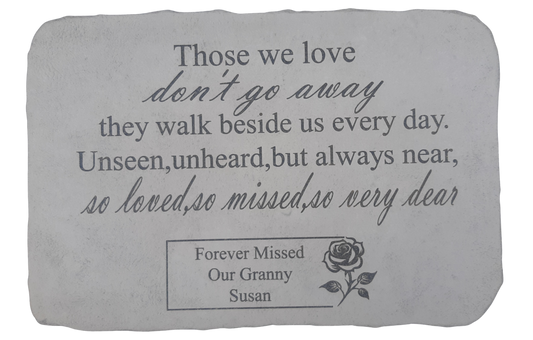 Those we love
don't go away
they walk beside us every day.
Unseen,unheard,but always near,
so loved,so missed,so very dear
Forever Missed
Our Granny
Susan